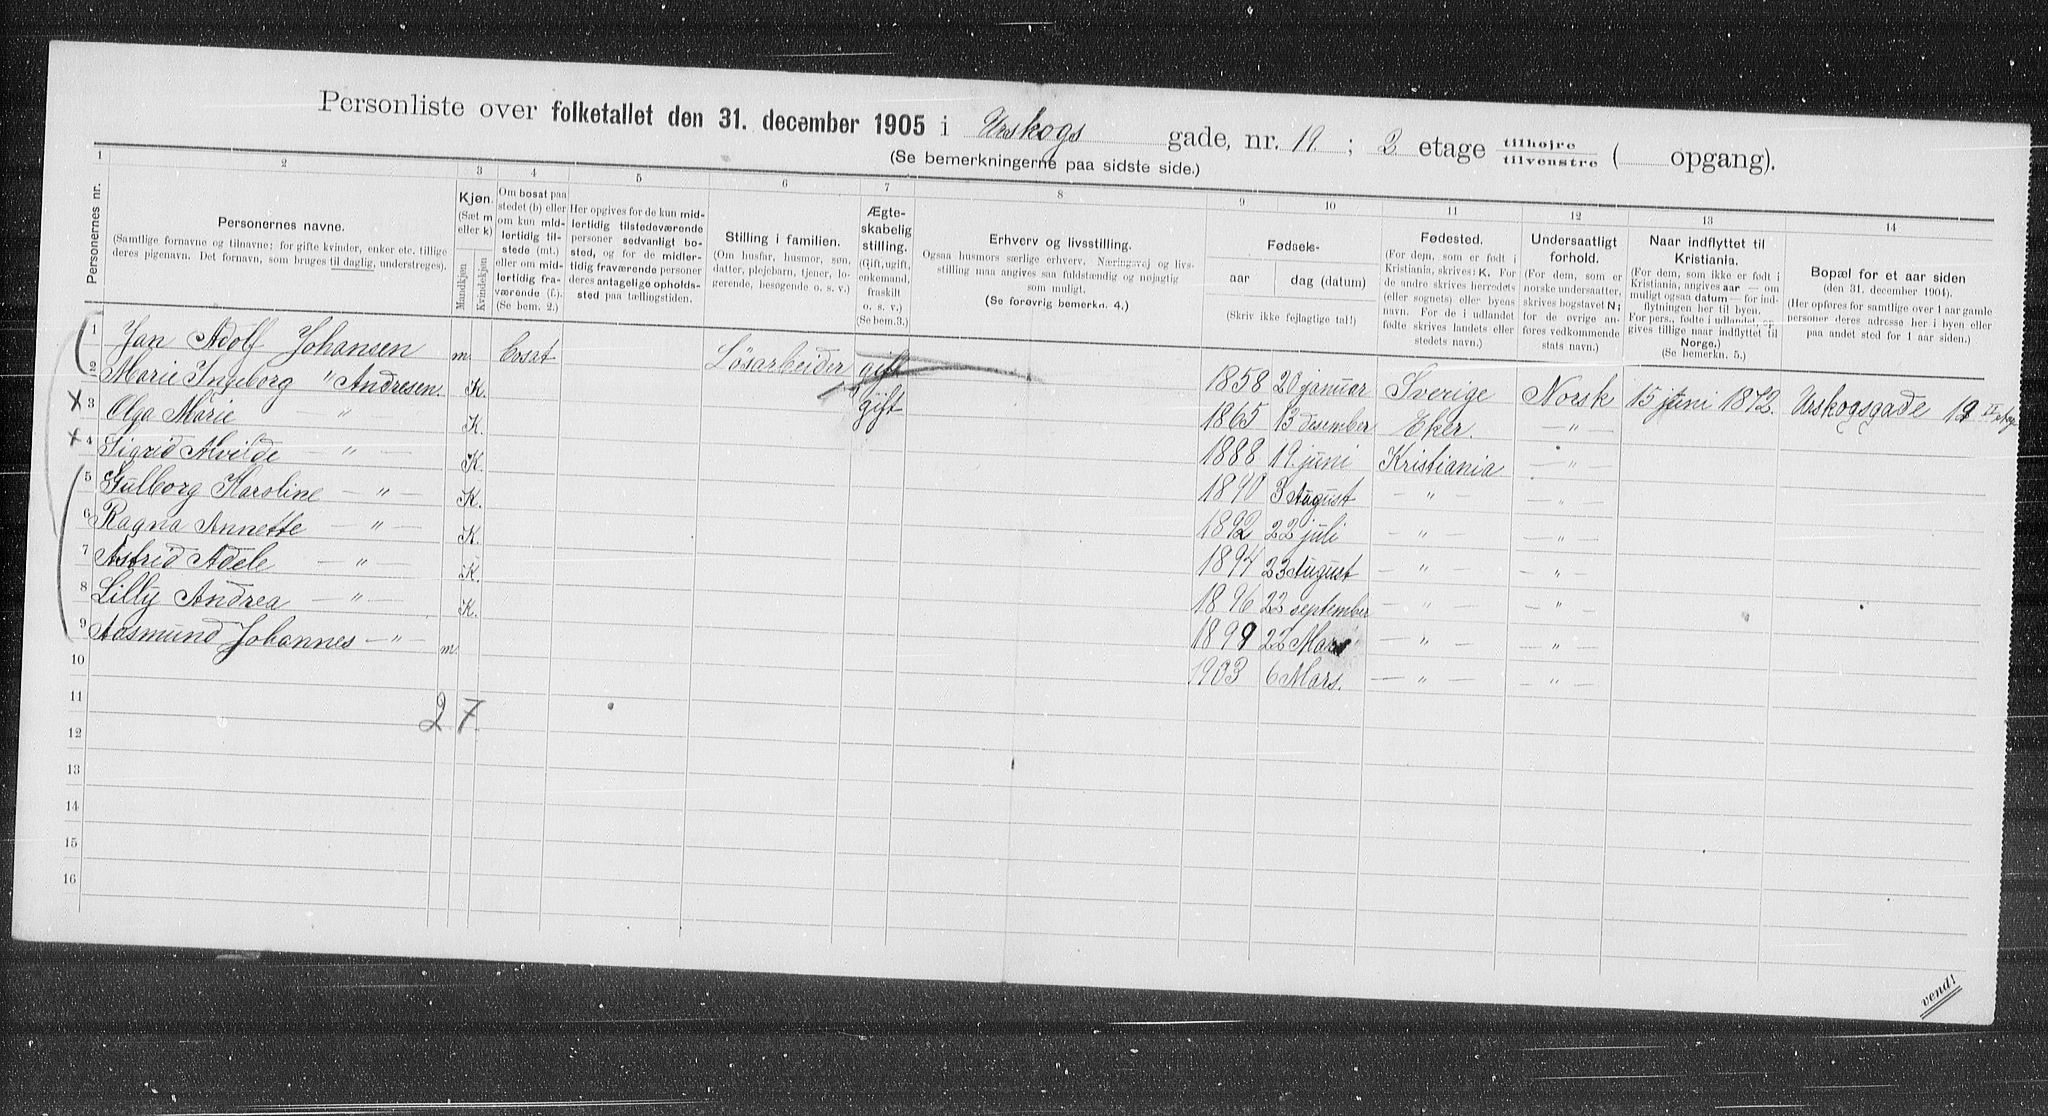 Personliste over folketallet den 31. december 1905 i Urskogs gade, nr. 19 ; 2 etage tilhøjre / tilvenstre ( opgang).
(Se bemerkningerne paa sidste side.)
1 2 3 4 5 6 7 8 9 10 11 12 13 14
Personernes nr.
Personernes navne.
(Samtlige fornavne og tilnavne; for gifte kvinder, enker etc. tillige
deres pigenavn. Det fornavn, som bruges til daglig, understreges).
Kjøn.
(Sæt m
eller k)
Mandkjøn
Kvindekjøn
Om bosat paa
stedet (b) eller
om kun mid-
lertidig til-
stede (mt.)
eller om mid-
lertidig fra-
værende (f.).
(Se bem. 2.)
Her opgives for de kun mid-
lertidig tilstedeværende
personer sedvanligt bo-
sted, og for de midler-
tidig fraværende personer
deres antagelige opholds-
sted paa tællingstiden.
Stilling i familien.
(Om husfar, husmor, søn,
datter, plejebarn, tjener, lo-
gerende, besøgende o. s. v.)
Ægte-
skabelig
stilling.
(Gift, ugift,
enkemand,
fraskilt
o. s. v.)
(Se bem.3.)
Erhverv og livsstilling.
Ogsaa husmors særlige erhverv. Næringsvej og livs-
stilling maa angives saa fuldstændig og nøjagtig
som muligt.
(Se forøvrig bemerkn. 4.)
Fødsels-
aar dag (datum)
(Skriv ikke fejlagtige tal!)
Fødested.
(For dem, som er født i
Kristiania, skrives: K. For
de andre skrives herredets
(eller sognets) eller byens
navn. For de i udlandet
fødte skrives landets eller
stedets navn.)
Undersaatligt
forhold.
(For dem, som er
norske undersaatter,
skrives bogstavet N;
for de øvrige an-
føres vedkommende
stats navn.)
Naar indflyttet til
Kristiania.
(For dem, som ikke er født i
Kristiania, angives aar — om
muligt ogsaa datum — for ind-
flytningen her til byen.
For pers., fødte i udlandet, an-
gives tillige naar indflyttet til
Norge.)
(Se bemerkn. 5.)
Bopæl for et aar siden
(den 31. december 1904).
(Her opføres for samtlige over 1 aar gamle
personer deres adresse her i byen eller
paa andet sted for 1 aar siden.)
1 Jan Adolf Johansen m bosat Løsarbeider gift 1858 20 januar Sverige Norsk 15 juni 1872. Urskogsgade 19 II etag
2 Marie Ingeborg " Andresen. K. gift 1865 13 desember Eker. — " —
3 Olga Marie — " — K. 1888 19. juni Kristiania — " —
4 Sigrid Alvilde — " — K. 1890 3 August — " — — " —
5 Gulborg Karoline — " — K. 1892 22 juli — " — — " —
6 Ragna Annette — " — K. 1894 23 August — " — — " —
7 Astrid Adele — " — K. 1896 22 september — " — — " —
8 Lilly Andrea — " — K. 1899 22 Mars — " — — " —
9 Aasmund Johannes — " — m. 1903 6 Mars. — " — — " —
10
11
2 7
12
13
14
15
16
vend!